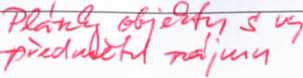 Plánky objektu s vy
předmětu nájmu